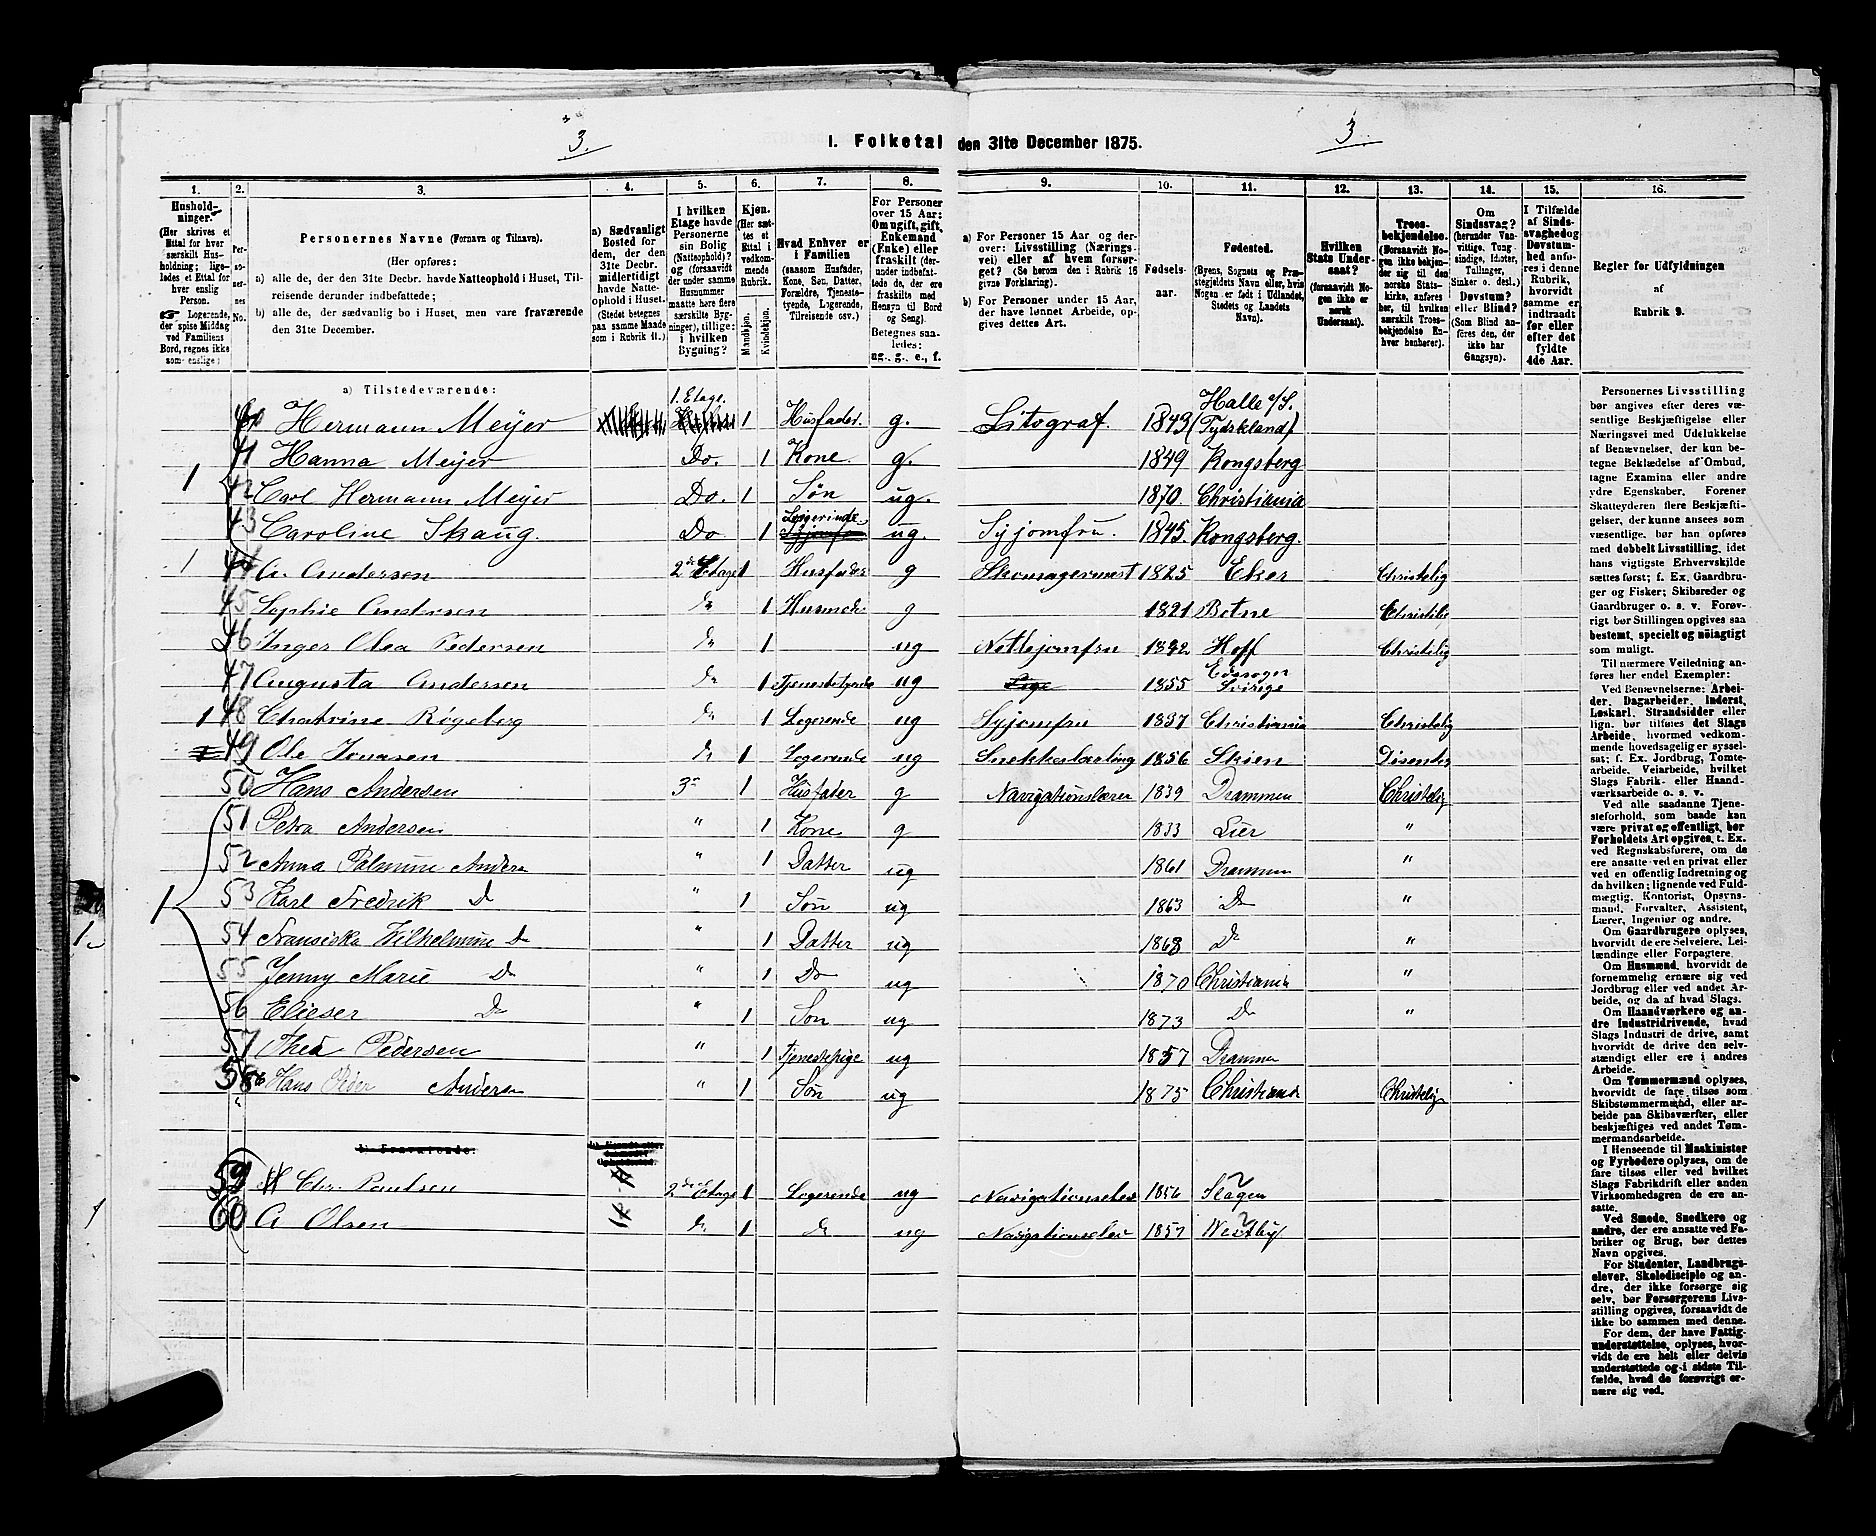 3.
3
I. Folketal den 31te December 1875.
1. 2. 3. 4. 5. 6. 7. 8. 9. 10. 11. 12. 13. 14. 15. 16.
Husholdninger. (Her skrives et Ettal for hver særskilt Husholdning; ligeledes et Ettal for hver enslig Person. Logerende, der spise Middag ved Familiens Bord, regnes ikke som enslige.)
Personernes No.
Personernes Navne (Fornavn og Tilnavn).
(Her opføres:
a) alle de, der den 31te Decbr. havde Natteophold i Huset, Tilreisende derunder indbefattede;
b) alle de, der sædvanlig bo i Huset, men vare fraværende den 31te December.
a) Sædvanligt Bosted for dem, der den 31te Decbr. midlertidigt havde Natteophold i Huset. (Stedet betegnes paa samme Maade som i Rubrik 11.)
I hvilken Etage havde Personerne sin Bolig (Natteophold)? og (forsaavidt der under samme Husnummer maatte høre flere særskilte Bygninger), tillige: i hvilken Bygning?
Kjøn. (Her sættes et Ettal i vedkommende Rubrik.
Mandkjøn. Kvindekjøn.
Hvad Enhver er i Familien (saasom Husfader, Kone, Søn, Datter, Forældre, Tjenestetyende, Logerende, Tilreisende osv.)
For Personer over 15 Aar: Om ugift, gift, Enkemand (Enke) eller fraskilt (derunder indbefattede de, der ere fraskilte med Hensyn til Bord og Seng). Betegnes saaledes: ug., g., e., f.
a) For Personer 15 Aar og derover: Livsstilling (Næringsvei) eller af hvem forsørget? (Se herom den i Rubrik 16 givne Forklaring).
b) For Personer under 15 Aar, der have lønnet Arbeide, opgives dettes Art.
Fødselsaar.
Fødested. (Byens, Sognets og Præstegjeldets Navn, eller, hvis Nogen er født i Udlandet, Stedets og Landets Navn).
Hvilken Stats Undersaat? (forsaavidt Nogen ikke er norsk Undersaat).
Troesbekjendelse. (Forsaavidt Nogen ikke bekjender sig til den norske Statskirke, anføres her, til hvilken særskilt Troesbekjendelse Enhver henhører).
Om Sindssvag? (herunder Vanvittige, Tungsindige, Idioter, Tullinger, Sinker o. desl.) Døvstum? eller Blind? (Som Blind anføres den, der ikke har Gangsyn).
I Tilfælde af Sindssvaghed og Døvstumhed anføres i denne Rubrik, hvorvidt samme er indtraadt før eller efter det fyldte 4de Aar.
Regler for Udfyldningen af Rubrik 9.
a) Tilstedeværende:
40 Hermann Meyer 1. Etage. 1 Husfader. g. Litograf. 1843 Halle a/S. (Tydskland)
41 Hanna Meyer Do. 1 Kone. g. 1849 Kongsberg
1 42 Carl Hermann Meyer Do. 1 Søn ug. 1870. Christiania
43 Caroline Skaug. Do 1 Leigerinde ug. Syjomfru. 1845. Kongsberg.
1 44 A. Andersen 2den Etage 1 Husfader g Skomagermest 1825 Eker Christelig
45 Sophie Andersen do 1 Husmoder g 1821 Botne Christelig
46 Inger Olea Pedersen do 1 ug 1832 Hoff Christelig
47 Augusta Andersen do 1 Tjenestetyende ug 1855 Sverige
1 48 Chatrine Røgeberg do 1 Logerende ug Syjomfru 1837 Christiania Christelig
49 Ole Jonasen do 1 Logerende ug Snekkerlærling 1856 Skien Disenter
50 Hans Andersen 3 1 Husfader g Navigationslærer 1839 Drammen Christelig
51 Petra Andersen " 1 Kone g 1833 Lier "
52 Anna Palmine Anders " 1 Datter ug 1861 Drammen "
1 53 Karl Fredrik Do " 1 Søn ug 1863 Do "
54 Fransiska Vilhelmine Do " 1 Datter ug 1868 Do "
55 Jenny Marie Do " 1 Do ug 1870 Christiania "
56 Elieser Do " 1 Søn ug 1873 Do "
57 Thea Pedersen " 1 Tjenestepige ug 1857 Drammen
58 Hans Peder Anders " 1 Søn ug 1875 Christiania Christelig
b) Fraværende:
59 Chr. Paulsen 2den Etage 1 Logerende ug Navigationselev 1856 Slagen
60 A Olsen do 1 do ug Navigationselev 1857 Westby
Personernes Livsstilling bør angives efter deres væsentlige Beskjæftigelse eller Næringsvei med Udelukkelse af Benævnelser, der kun betegne Beklædelse af Ombud, tagne Examina eller andre ydre Egenskaber. Forener Skatteyderen flere Beskjæftigelser, der kunne ansees som væsentlige, bør han opføres med dobbelt Livsstilling, idet hans vigtigste Erhvervskilde sættes først; f. Ex. Gaardbruger og Fisker; Skibsreder og Gaardbruger o. s. v. Forøvrigt bør Stillingen opgives saa bestemt, specielt og nøiagtigt som muligt.
Til nærmere Veiledning anføres her endel Exempler:
Ved Benævnelserne: Arbeider, Dagarbeider, Inderst, Løskarl, Strandsidder eller lign. bør tilføies det Slags Arbeide, hvormed vedkommende hovedsagelig er sysselsat; f. Ex. Jordbrug, Tomtearbeide, Veiarbeide, hvilket Slags Fabrik- eller Haandværksarbeide o. s. v.
Ved alle saadanne Tjenesteforhold, som baade kan være privat og offentligt, bør Forholdets Art opgives, t. Ex. ved Regnskabsførere, om de ere ansatte ved en privat eller ved en offentlig Indretning og da hvilken; lignende ved Fuldmægtig, Kontorist, Opsynsmand, Forvalter, Assistent, Lærer, Ingeniør og andre.
Om Gaardbrugere oplyses, hvorvidt de ere Selveiere, Leilændinge eller Forpagtere.
Om Husmænd, hvorvidt de fornemmelig ernære sig ved Jordbrug eller ved andet Arbeide, og da af hvad Slags.
Om Haandværkere og andre Industridrivende, hvad Slags Industri de drive, samt hvorvidt de drive den selvstændigt eller ere i andres Arbeide.
Om Tømmermænd oplyses, hvorvidt de fare tilsøs som Skibstømmermænd, eller arbeide paa Skibsværfter, eller beskjæftiges ved andet Tømmermandsarbeide.
I Henseende til Maskinister og Fyrbødere oplyses, om de fare tilsøs eller ved hvilket Slags Fabrikdrift eller anden Virksomhedsgren de ere ansatte.
Ved Smede, Snedkere og andre, der ere ansatte ved Fabriker og Brug, bør dettes Navn opgives.
For Studenter, Landbrugselever, Skoledisciple og andre, der ikke forsørge sig selv, bør Forsørgerens Livsstilling opgives, forsaavidt de ikke bo sammen med denne.
For dem, der have Fattigunderstøttelse, oplyses, hvorvidt de ere helt eller delvis understøttede og i sidste Tilfælde, hvad de forøvrigt ernære sig ved.